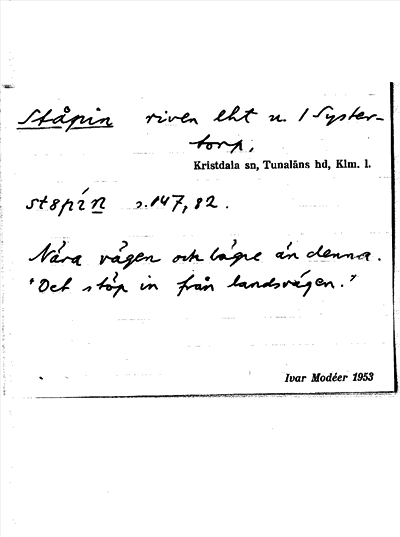 Ståpin riven lht u. / Syster-
torp,
Kristdala sn, Tunaläns hd, Klm. l.
stspín s.147,82.
Nära vägen och lägre än denna.
"Det stöp in från landsvägen."
Ivar Modéer 1953